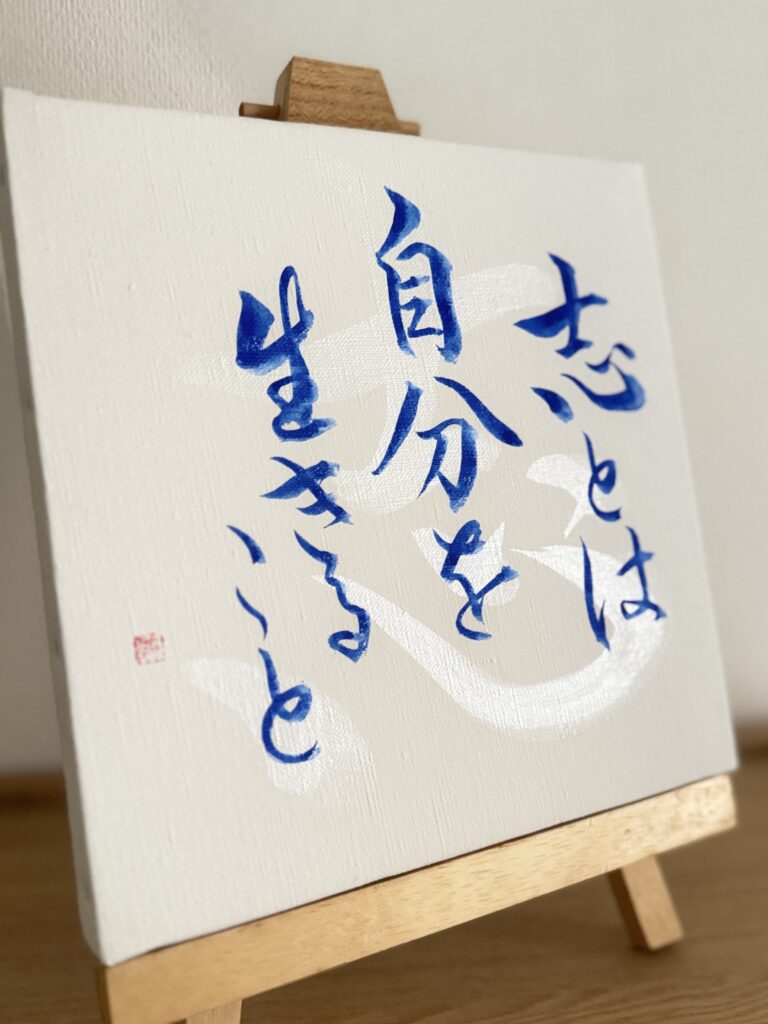 志とは
自分を
生きること